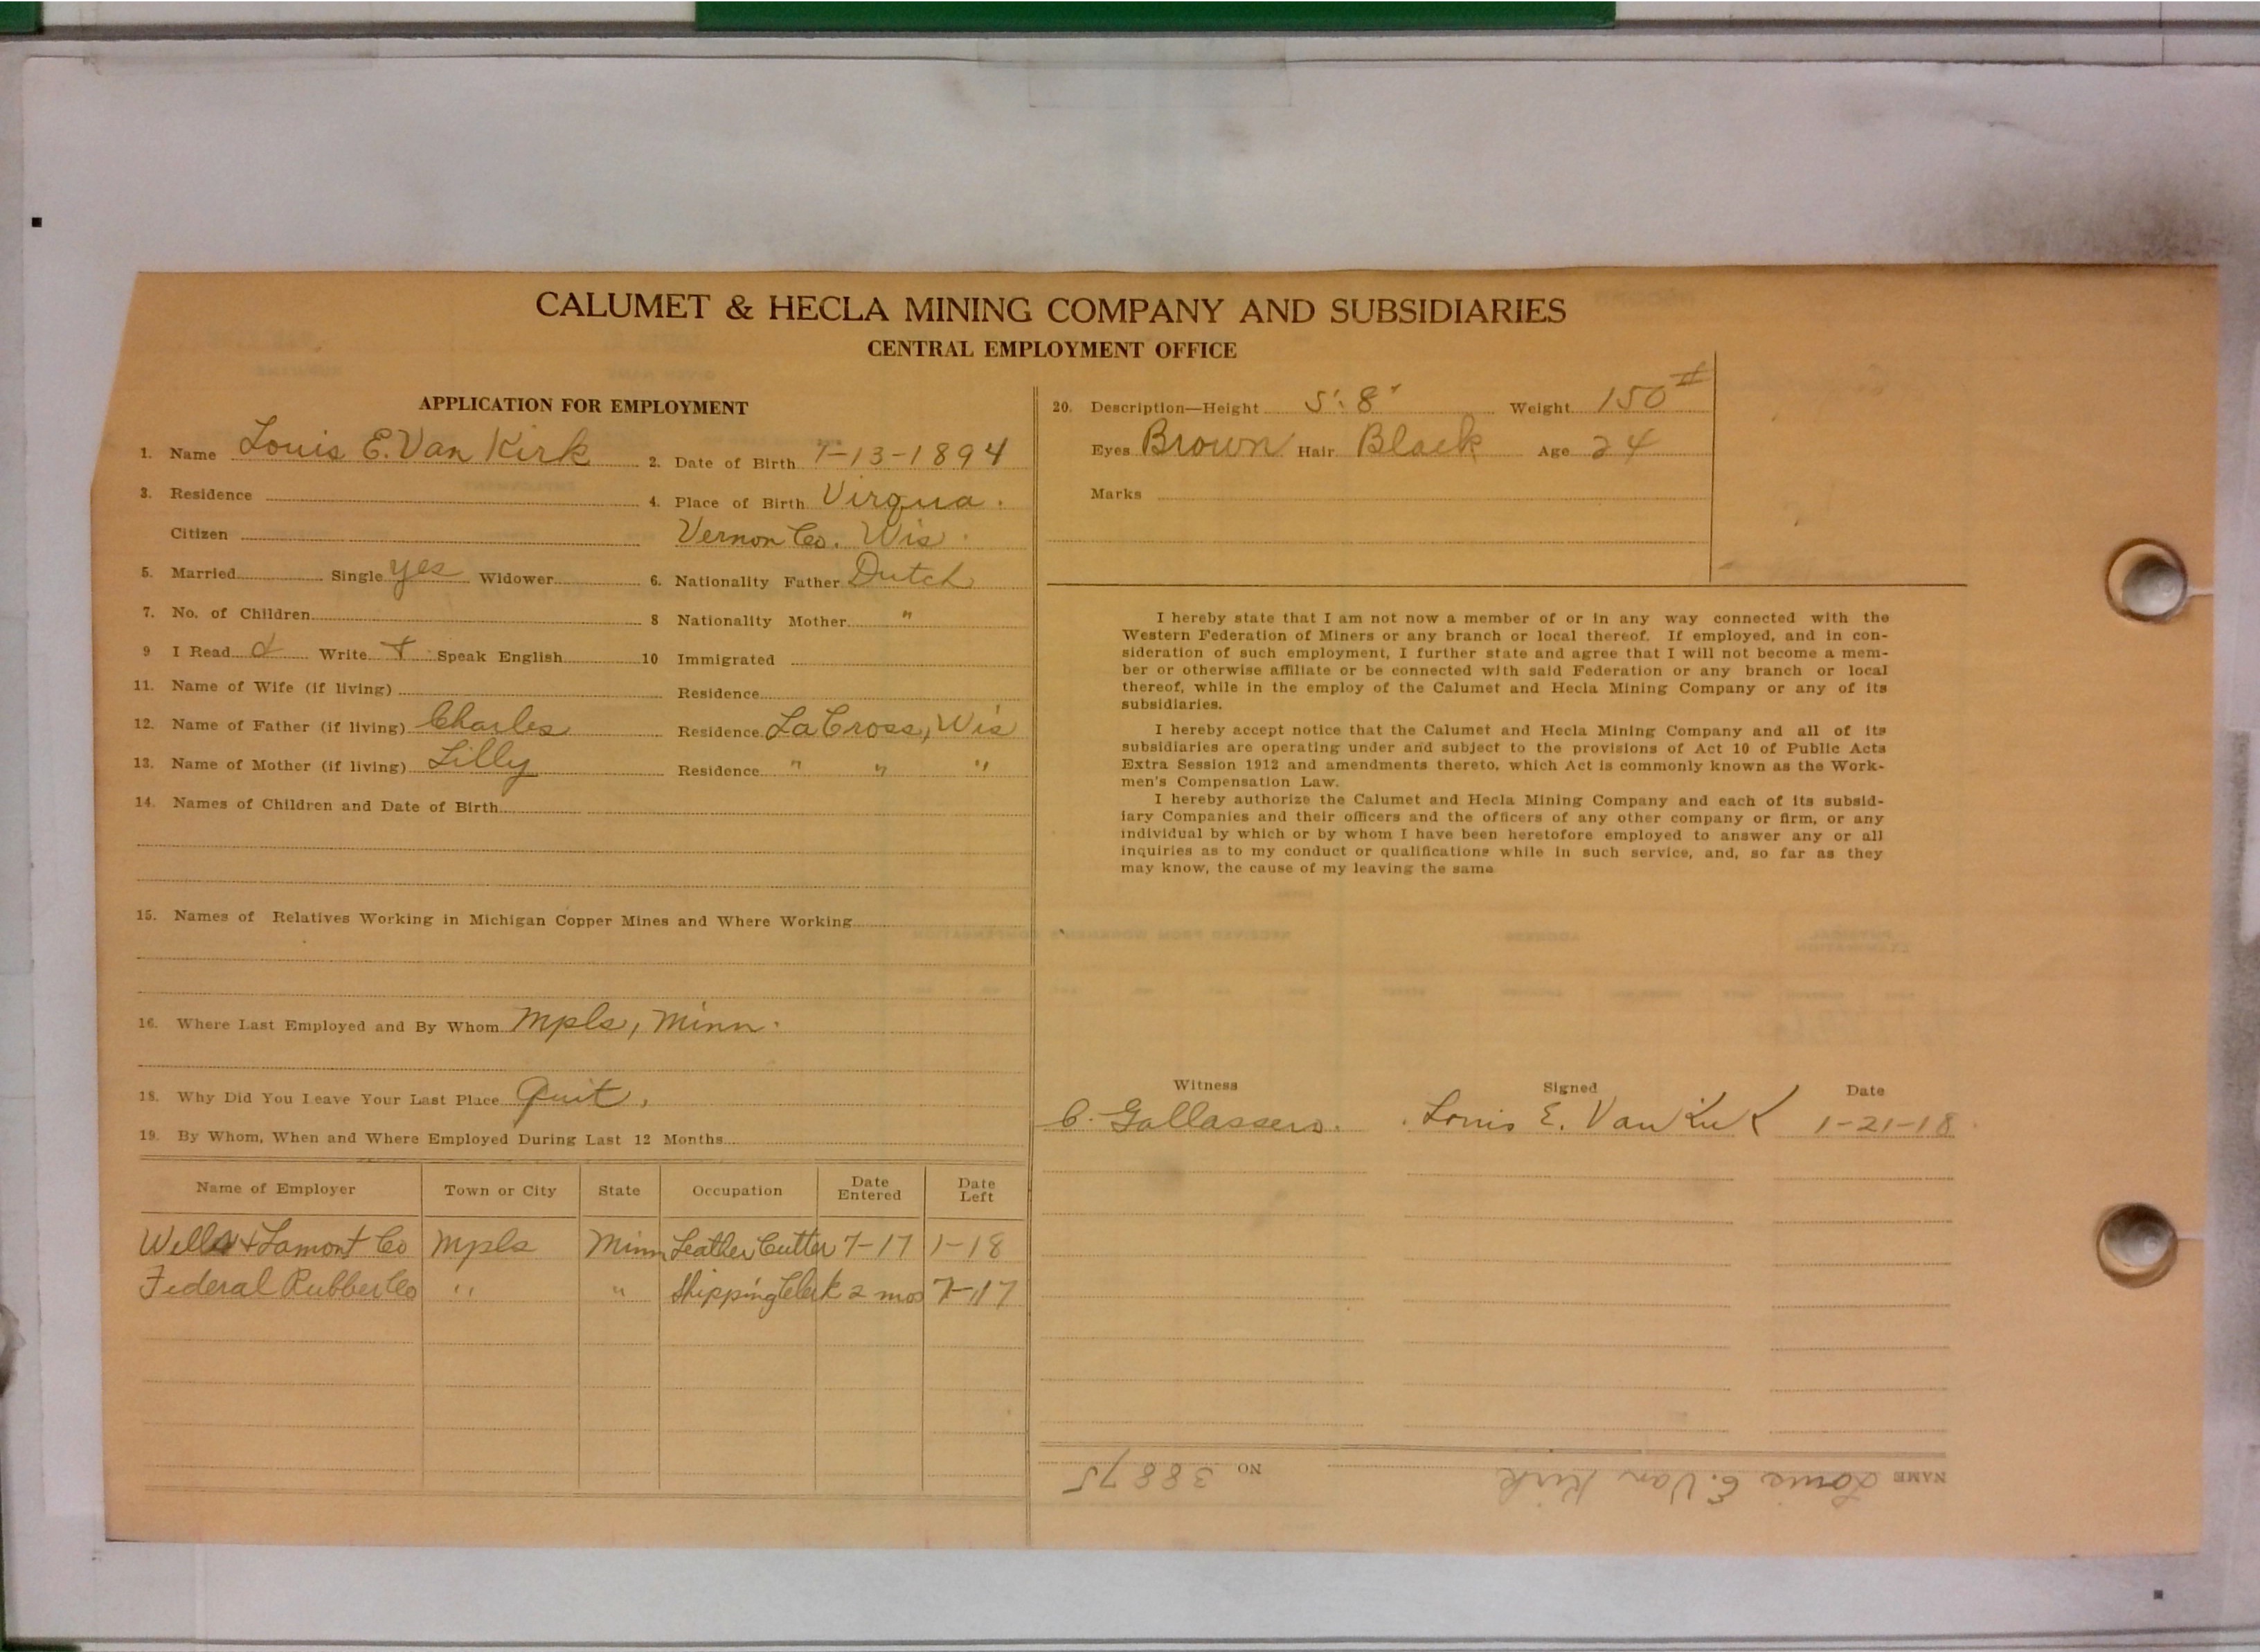 CALUMET & HECLA MINING COMPANY AND SUBSIDIARIES
CENTRAL EMPLOYMENT OFFICE
APPLICATION FOR EMPLOYMENT
1. Name Louis E. Van Kirk 2. Date of Birth 7-13-1894
3. Residence 4. Place of Birth Virqua.
Citizen Vernon Co. Wis.
5. Married Single yes Widower 6. Nationality Father Dutch
7. No. of Children 8 Nationality Mother "
9 I Read Write + Speak English 10 Immigrated
11. Name of Wife (if living) Residence
12. Name of Father (if living) Charles Residence La Cross, Wis
13. Name of Mother (if living) Lilly Residence " " "
14. Names of Children and Date of Birth
15. Names of Relatives Working in Michigan Copper Mines and Where Working
16. Where Last Employed and By Whom Mpls, Minn.
18. Why Did You Leave Your Last Place Quit.
19. By Whom, When and Where Employed During Last 12 Months
Name of Employer Town or City State Occupation Date Entered Date Left
Wells & Lamont Co Mpls Minn Leather Cutter 7-17 1-18
Federal Rubber Co " " Shipping Clerk 2 mos 7-17
20. Description—Height 5' 8" Weight 150#
Eyes Brown Hair Black Age 24
Marks
I hereby state that I am not now a member of or in any way connected with the
Western Federation of Miners or any branch or local thereof. If employed, and in con-
sideration of such employment, I further state and agree that I will not become a mem-
ber or otherwise affiliate or be connected with said Federation or any branch or local
thereof, while in the employ of the Calumet and Hecla Mining Company or any of its
subsidiaries.
I hereby accept notice that the Calumet and Hecla Mining Company and all of its
subsidiaries are operating under and subject to the provisions of Act 10 of Public Acts
Extra Session 1912 and amendments thereto, which Act is commonly known as the Work-
men's Compensation Law.
I hereby authorize the Calumet and Hecla Mining Company and each of its subsid-
iary Companies and their officers and the officers of any other company or firm, or any
individual by which or by whom I have been heretofore employed to answer any or all
inquiries as to my conduct or qualifications while in such service, and, so far as they
may know, the cause of my leaving the same
Witness Signed Date
C. Gallassero. Louis E. Van Kirk 1-21-18
NAME Louis E. Van Kirk NO 38875